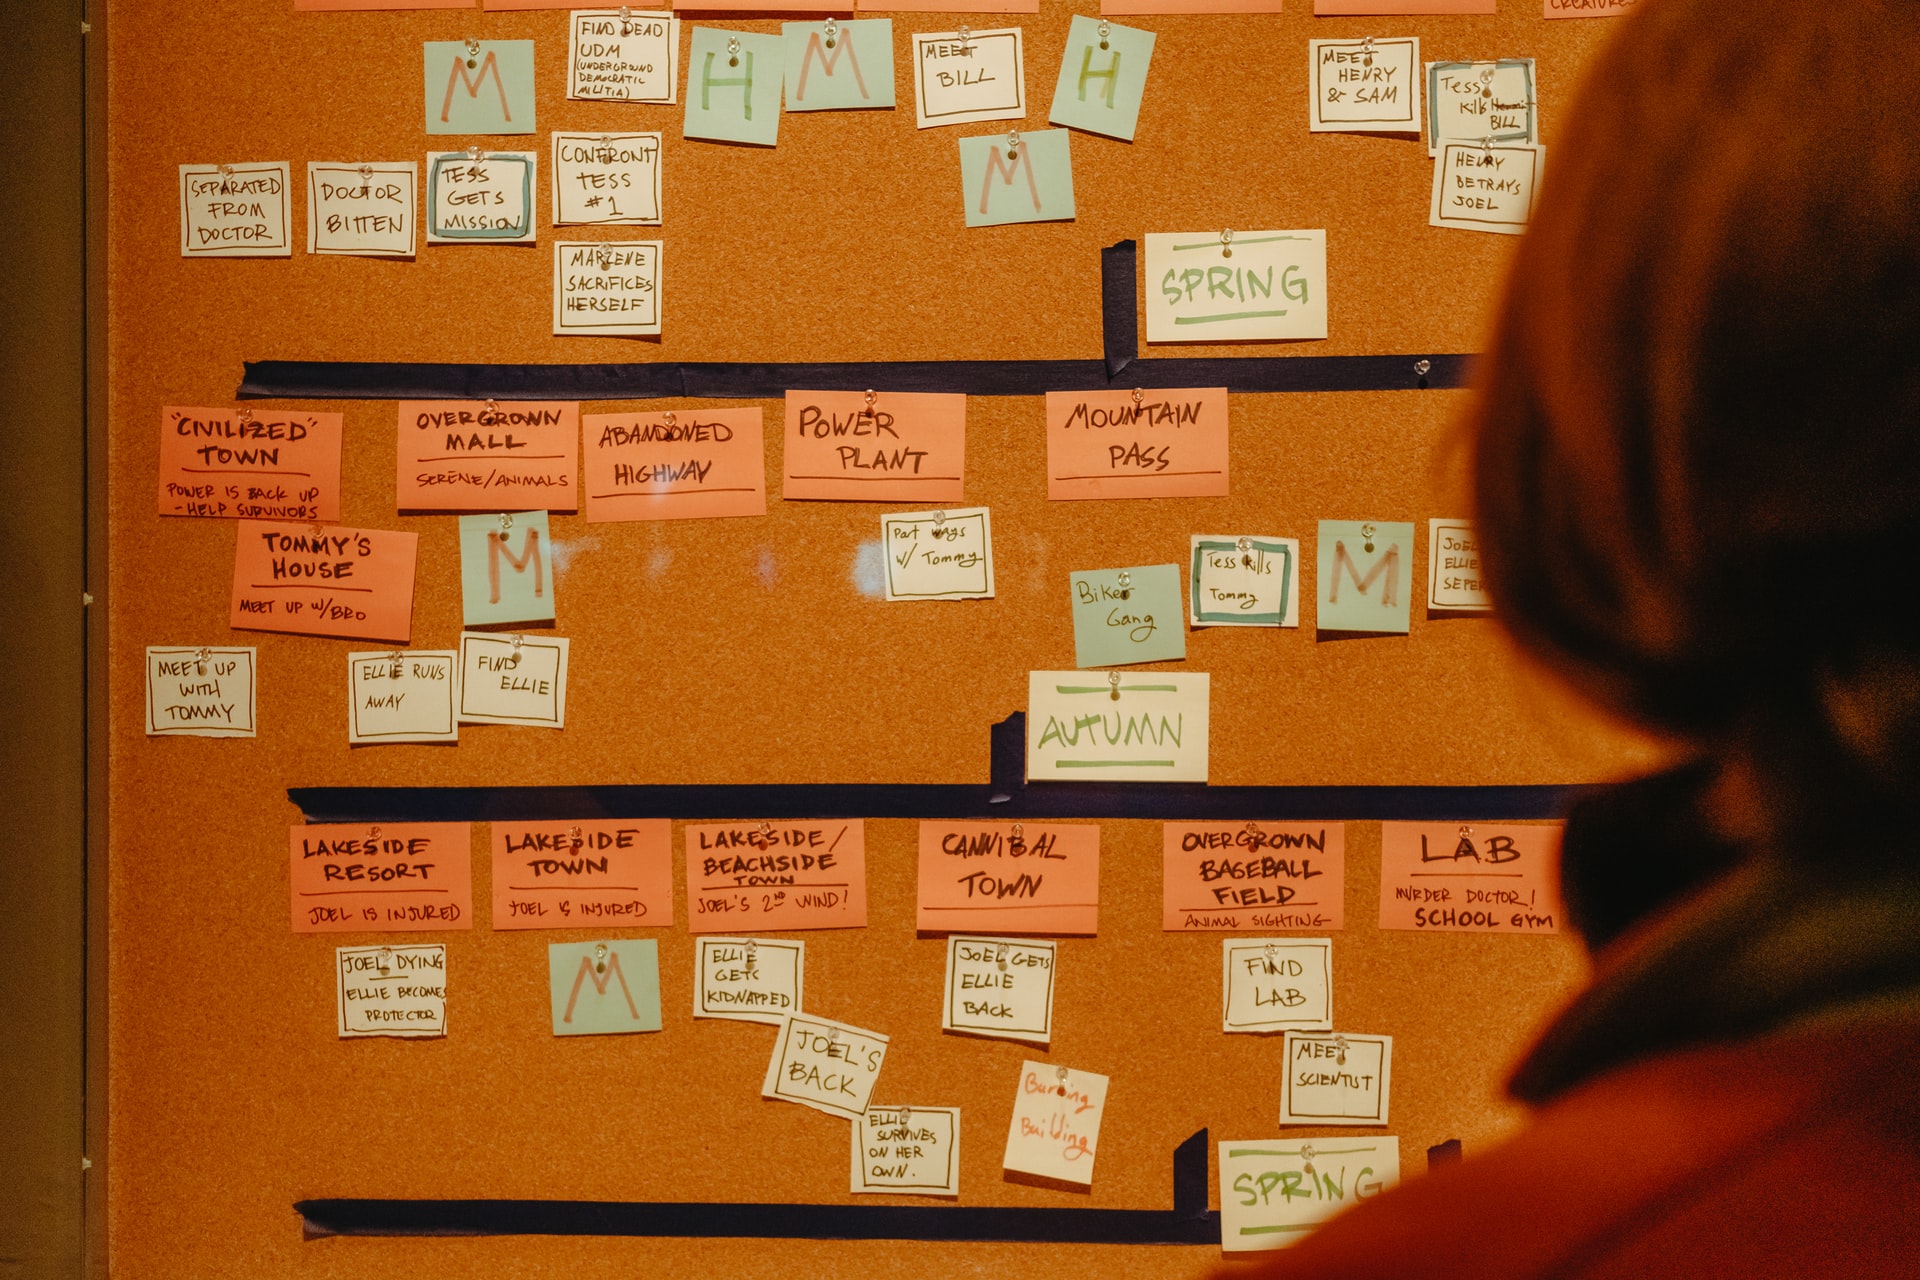 CREATURES
M
FIND DEAD
UDM
(UNDERGROUND
DEMOCRATIC
MILITIA)
H
M
MEET
BILL
H
MEET
HENRY
& SAM
Tess
Kills Hermit
BILL
M
SEPARATED
FROM
DOCTOR
DOCTOR
BITTEN
TESS
GETS
MISSION
CONFRONT
TESS
#1
HENRY
BETRAYS
JOEL
MARLENE
SACRIFICES
HERSELF
SPRING
"CIVILIZED"
TOWN
POWER IS BACK UP
- HELP SURVIVORS
OVERGROWN
MALL
SERENE/ANIMALS
ABANDONED
HIGHWAY
POWER
PLANT
MOUNTAIN
PASS
TOMMY'S
HOUSE
MEET UP W/BRO
M
Part ways
W/ Tommy
Biker
Gang
Tess Kills
Tommy
M
JOEL
ELLIE
SEPER
MEET UP
WITH
TOMMY
ELLIE RUNS
AWAY
FIND
ELLIE
AUTUMN
LAKESIDE
RESORT
JOEL IS INJURED
LAKESIDE
TOWN
JOEL IS INJURED
LAKESIDE/
BEACHSIDE
TOWN
JOEL'S 2ND WIND!
CANNIBAL
TOWN
OVERGROWN
BASEBALL
FIELD
ANIMAL SIGHTING
LAB
MURDER DOCTOR!
SCHOOL GYM
JOEL DYING
ELLIE BECOMES
PROTECTOR
M
ELLIE
GETS
KIDNAPPED
JOEL GETS
ELLIE
BACK
FIND
LAB
JOEL'S
BACK
MEET
SCIENTIST
Burning
Building
ELLIE
SURVIVES
ON HER
OWN.
SPRING